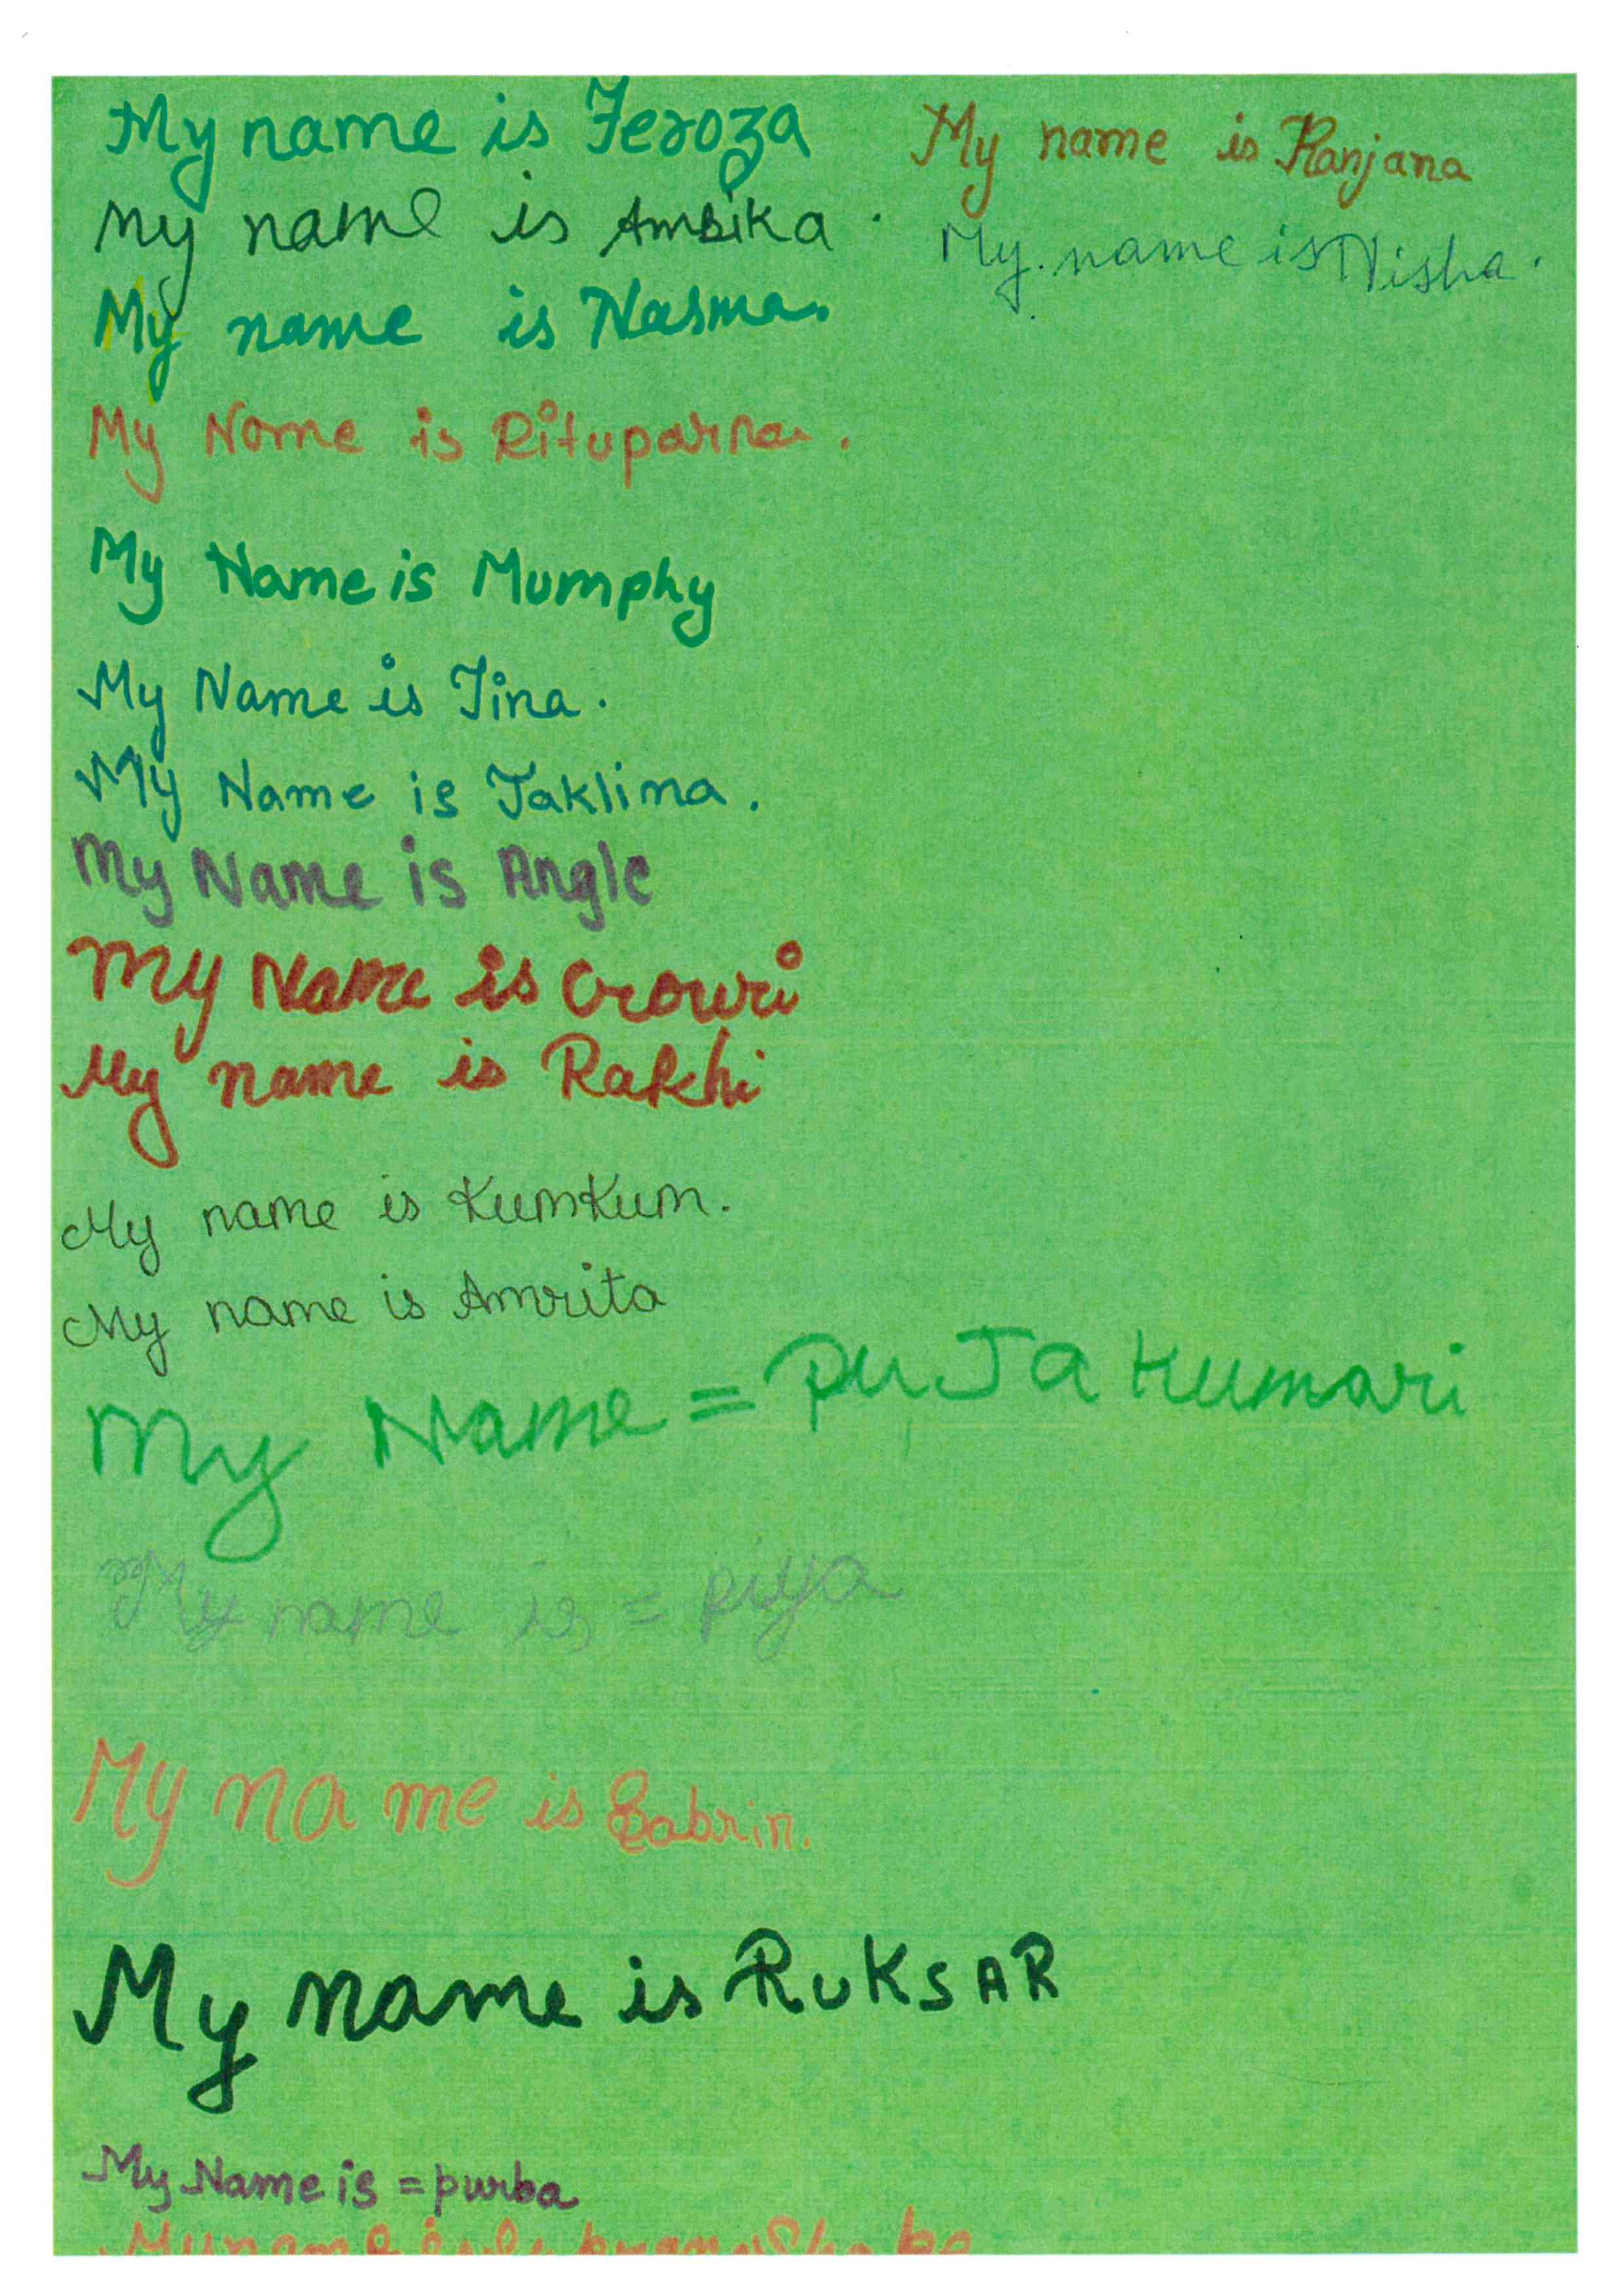 My name is Feroza
My name is Ambika.
My name is Nasma.
My Name is Rituparna.
My Name is Mumphy
My Name is Tina.
My Name is Taklima.
My Name is Angle
My Name is Gowri
My name is Rakhi
My name is KumKum.
My name is Amrita
My Name = PuJa Kumari
My name is = piya
My name is Sabrin.
My name is RuKSAR
My Name is = purba
My name is
My name is Ranjana
My name is Nisha.